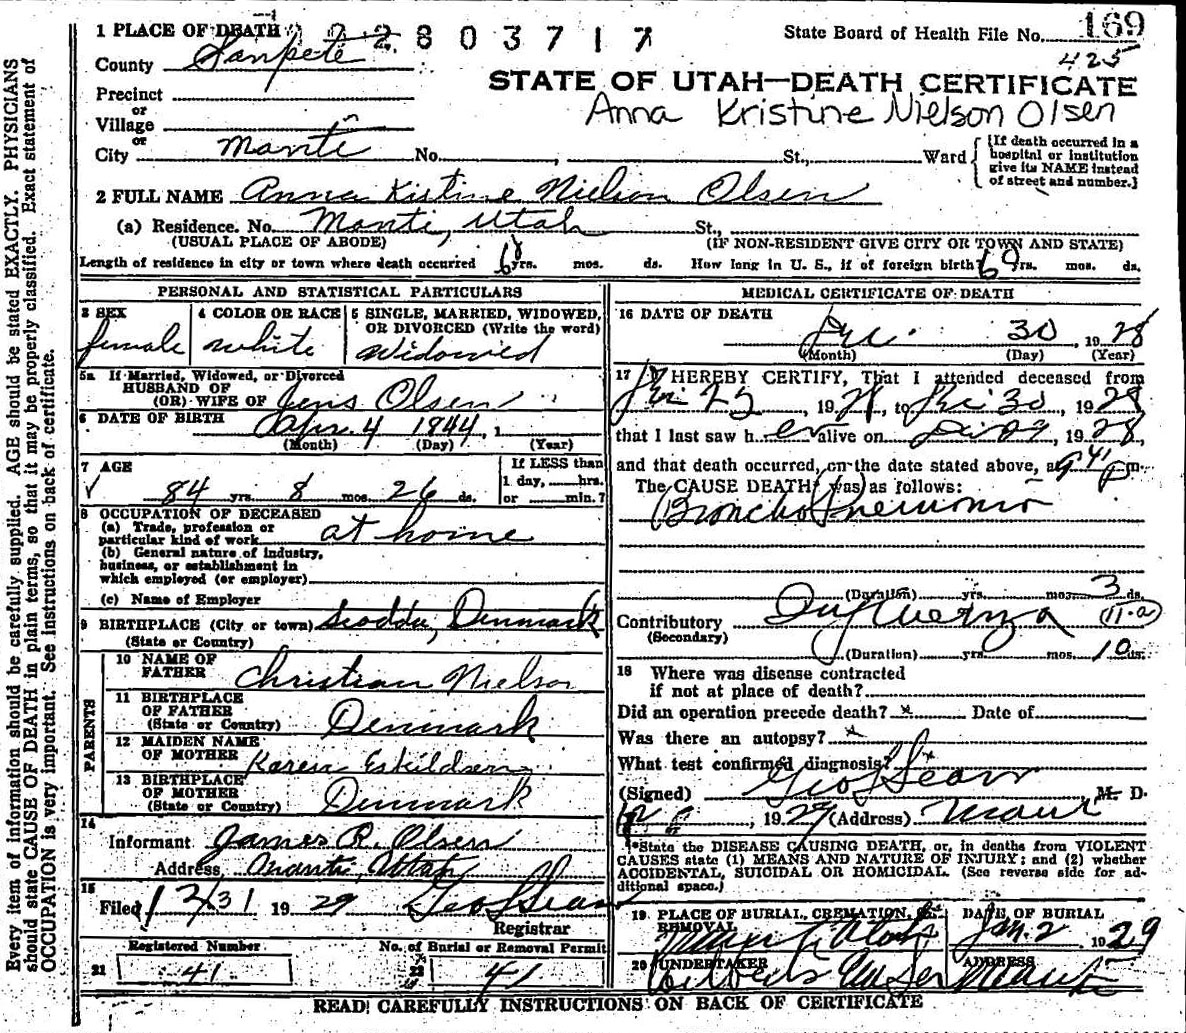 169
1 PLACE OF DEATH 2 2 2 8 0 3 7 1 7 State Board of Health File No.
425
County Sanpete
STATE OF UTAH—DEATH CERTIFICATE
Precinct
or
Village
Anna Kristine Nielson Olsen
or
City Manti No. , St., Ward {If death occurred in a hospital or institution give its NAME instead of street and number.}
2 FULL NAME Anna Kistine Nielson Olsen
(a) Residence. No. Manti, Utah St.,
(USUAL PLACE OF ABODE) (IF NON-RESIDENT GIVE CITY OR TOWN AND STATE)
Length of residence in city or town where death occurred 68 yrs. mos. ds. How long in U. S., if of foreign birth? yrs. mos. ds.
PERSONAL AND STATISTICAL PARTICULARS
3 SEX
female
4 COLOR OR RACE
white
5 SINGLE, MARRIED, WIDOWED,
OR DIVORCED (Write the word)
Widowed
5a If Married, Widowed, or Divorced
HUSBAND OF
(OR) WIFE OF Jens Olsen
6 DATE OF BIRTH Apr. 4 1844, 1
(Month) (Day) (Year)
7 AGE
84 yrs. 8 mos. 26 ds.
If LESS than
1 day, hrs.
or min.?
8 OCCUPATION OF DECEASED
(a) Trade, profession or
particular kind of work at home
(b) General nature of industry,
business, or establishment in
which employed (or employer)
(c) Name of Employer
9 BIRTHPLACE (City or town) Denmark
(State or Country)
PARENTS
10 NAME OF
FATHER Christian Nielson
11 BIRTHPLACE
OF FATHER
(State or Country) Denmark
12 MAIDEN NAME
OF MOTHER Karen Eskildsen
13 BIRTHPLACE
OF MOTHER
(State or Country) Denmark
14
Informant James R. Olsen
Address Manti, Utah
15
Filed 12/31 1929 Geo L Sears
Registrar
Registered Number No. of Burial or Removal Permit
21 41 22 41
MEDICAL CERTIFICATE OF DEATH
16 DATE OF DEATH
Dec. 30, 1928
(Month) (Day) (Year)
17 I HEREBY CERTIFY, That I attended deceased from
, 1928, to Dec 30, 1928
that I last saw her alive on Dec 29, 1928,
and that death occurred, on the date stated above, at 9 41 p m.
The CAUSE DEATH was as follows:
Broncho Pneumonia
(Duration) yrs. mos. 3 ds.
Contributory Influenza 11-a
(Secondary)
(Duration) yrs. mos. 10 ds.
18 Where was disease contracted
if not at place of death?
Did an operation precede death? x Date of
Was there an autopsy? x
What test confirmed diagnosis? x
(Signed) Geo L Sears M. D.
, 1929 (Address) Manti
*State the DISEASE CAUSING DEATH, or, in deaths from VIOLENT
CAUSES state (1) MEANS AND NATURE OF INJURY; and (2) whether
ACCIDENTAL, SUICIDAL OR HOMICIDAL. (See reverse side for ad-
ditional space.)
19 PLACE OF BURIAL, CREMATION, OR DATE OF BURIAL
REMOVAL
Manti Utah Jan. 2 1929
20 UNDERTAKER ADDRESS
Manti
READ CAREFULLY INSTRUCTIONS ON BACK OF CERTIFICATE
Every item of information should be carefully supplied. AGE should be stated EXACTLY. PHYSICIANS
should state CAUSE OF DEATH in plain terms, so that it may be properly classified. Exact statement of
OCCUPATION is very important. See instructions on back of certificate.